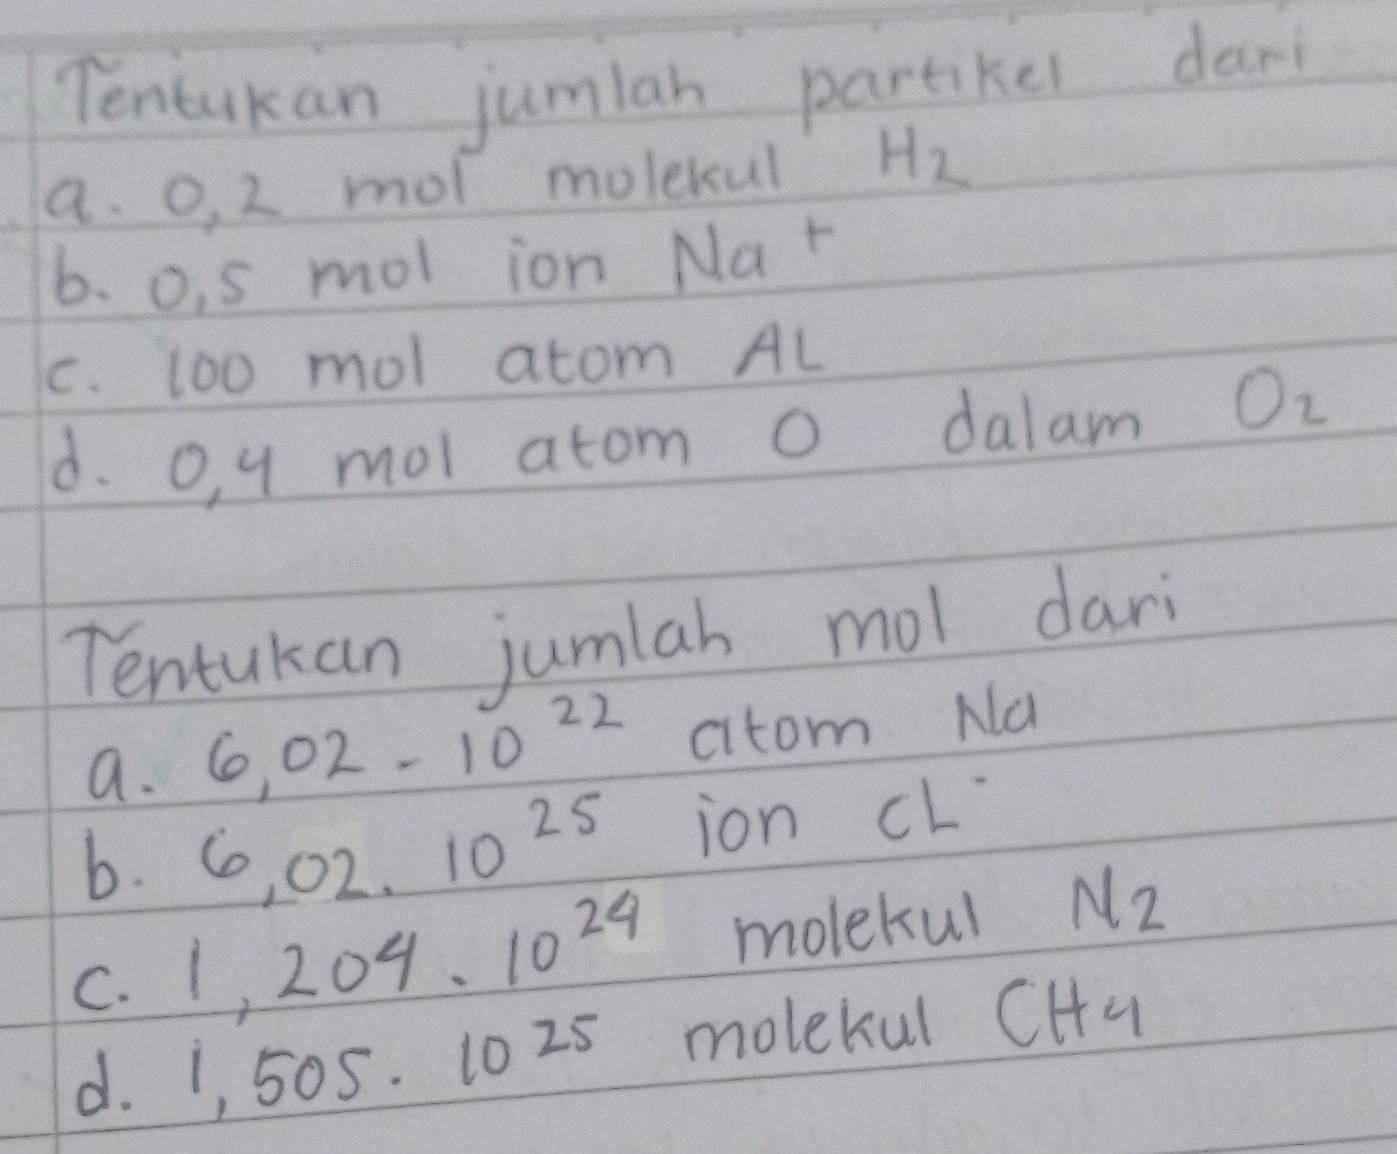 Tentukan jumlah partikel dari
a. 0,2 mol molekul H2
b. 0,5 mol ion Na+
c. 100 mol atom AL
d. 0,4 mol atom O dalam O2
Tentukan jumlah mol dari
a. 6,02 - 10^22 atom Na
b. 6,02. 10^25 ion CL-
c. 1,204. 10^24 molekul N2
d. 1,505. 10^25 molekul CH4